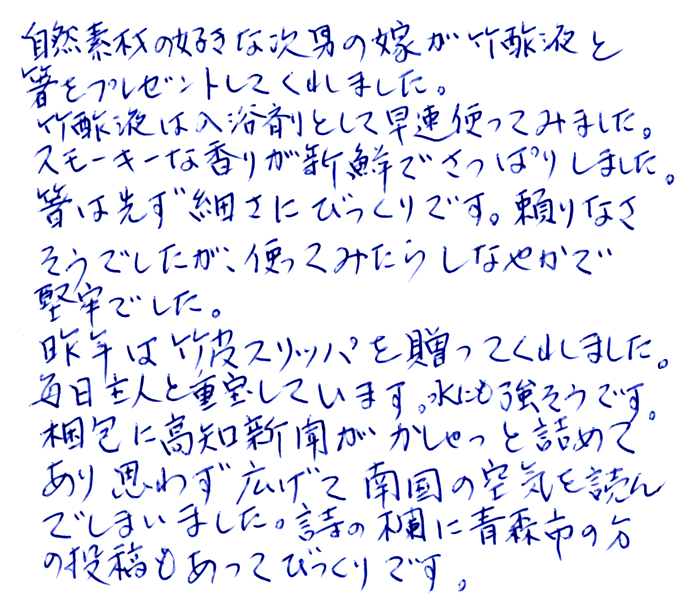 自然素材の好きな次男の嫁が竹酢液と
箸をプレゼントしてくれました。
竹酢液は入浴剤として早速使ってみました。
スモーキーな香りが新鮮でさっぱりしました。
箸は先ず細さにびっくりです。頼りなさ
そうでしたが、使ってみたらしなやかで
堅牢でした。
昨年は竹皮スリッパを贈ってくれました。
毎日主人と重宝しています。水にも強そうです。
梱包に高知新聞がかしゃっと詰めて
あり思わず広げて南国の空気を読ん
でしまいました。詩の欄に青森市の方
の投稿もあってびっくりです。